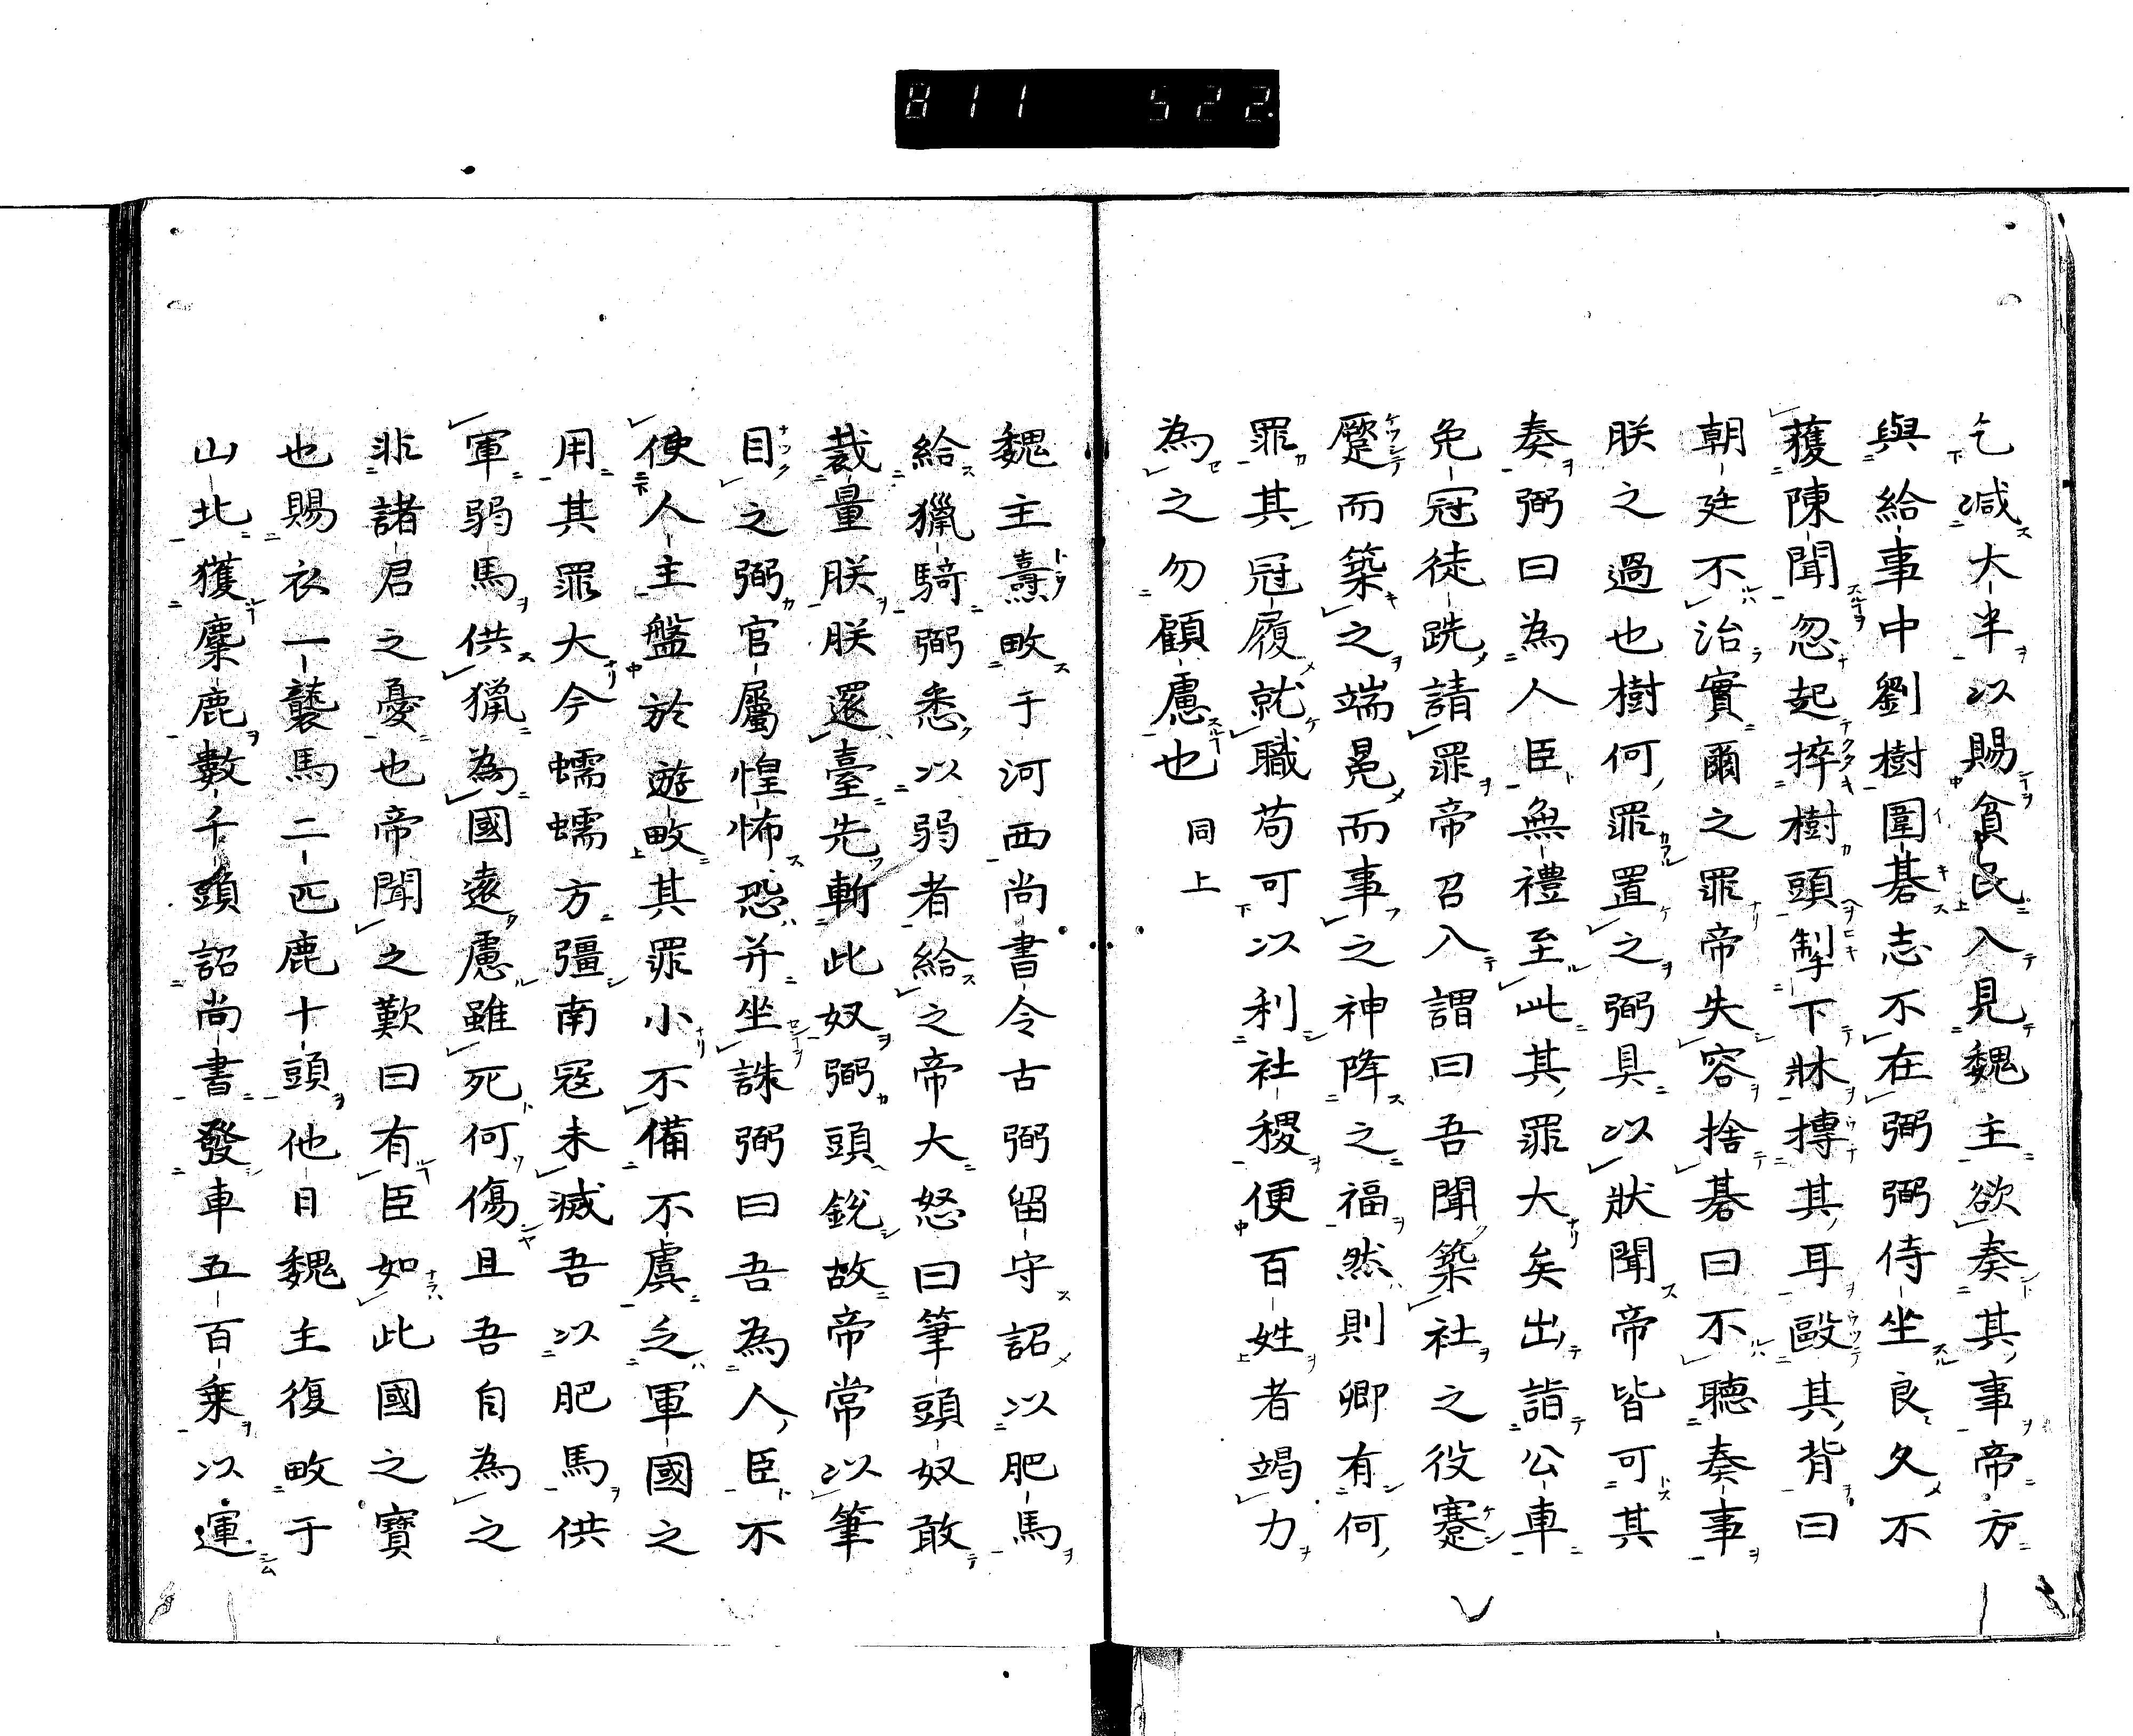 811 522
乞減大半以賜貧民入見魏主欲奏其事帝方
與給事中劉樹圍碁志不在弼弼侍坐良久不
獲陳聞忽起捽樹頭掣下牀摶其耳毆其背曰
朝廷不治實爾之罪帝失容捨碁曰不聽奏事
朕之過也樹何罪置之弼具以狀聞帝皆可其
奏弼曰為人臣無禮至此其罪大矣出詣公車
免冠徒跣請罪帝召入謂曰吾聞築社之役蹇
蹷而築之端冕而事之神降之福然則卿有何
罪其冠履就職苟可以利社稷便百姓者竭力
為之勿顧慮也 同上
魏主燾畋于河西尚書令古弼留守詔以肥馬
給獵騎弼悉以弱者給之帝大怒曰筆頭奴敢
裁量朕朕還臺先斬此奴弼頭銳故帝常以筆
目之弼官屬惶怖恐并坐誅弼曰吾為人臣不
使人主盤於遊畋其罪小不備不虞乏軍國之
用其罪大今蠕蠕方彊南寇未滅吾以肥馬供
軍弱馬供獵為國遠慮雖死何傷且吾自為之
非諸君之憂也帝聞之歎曰有臣如此國之寶
也賜衣一襲馬二匹鹿十頭他日魏主復畋于
山北獲麋鹿數千頭詔尚書發車五百乗以運